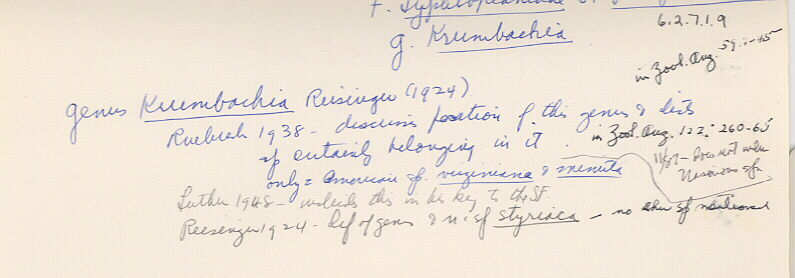 F. Typhloplanidae
g. Krumbachia
6.2.7.1.9
in Zool. Anz. 59:-45
genus Krumbachia Reisinger (1924)
Ruebush 1938 - discusses position of this genus & lists
sp certainly belonging in it. in Zool. Anz. 122: 260-65
only 2 American sp. virginiana & minuta
11/87 - does not when
Luther 1948 - includes this in his key to the SF.
Reisinger 1924 - def of genus & n. sp styriaca - no other sp mentioned